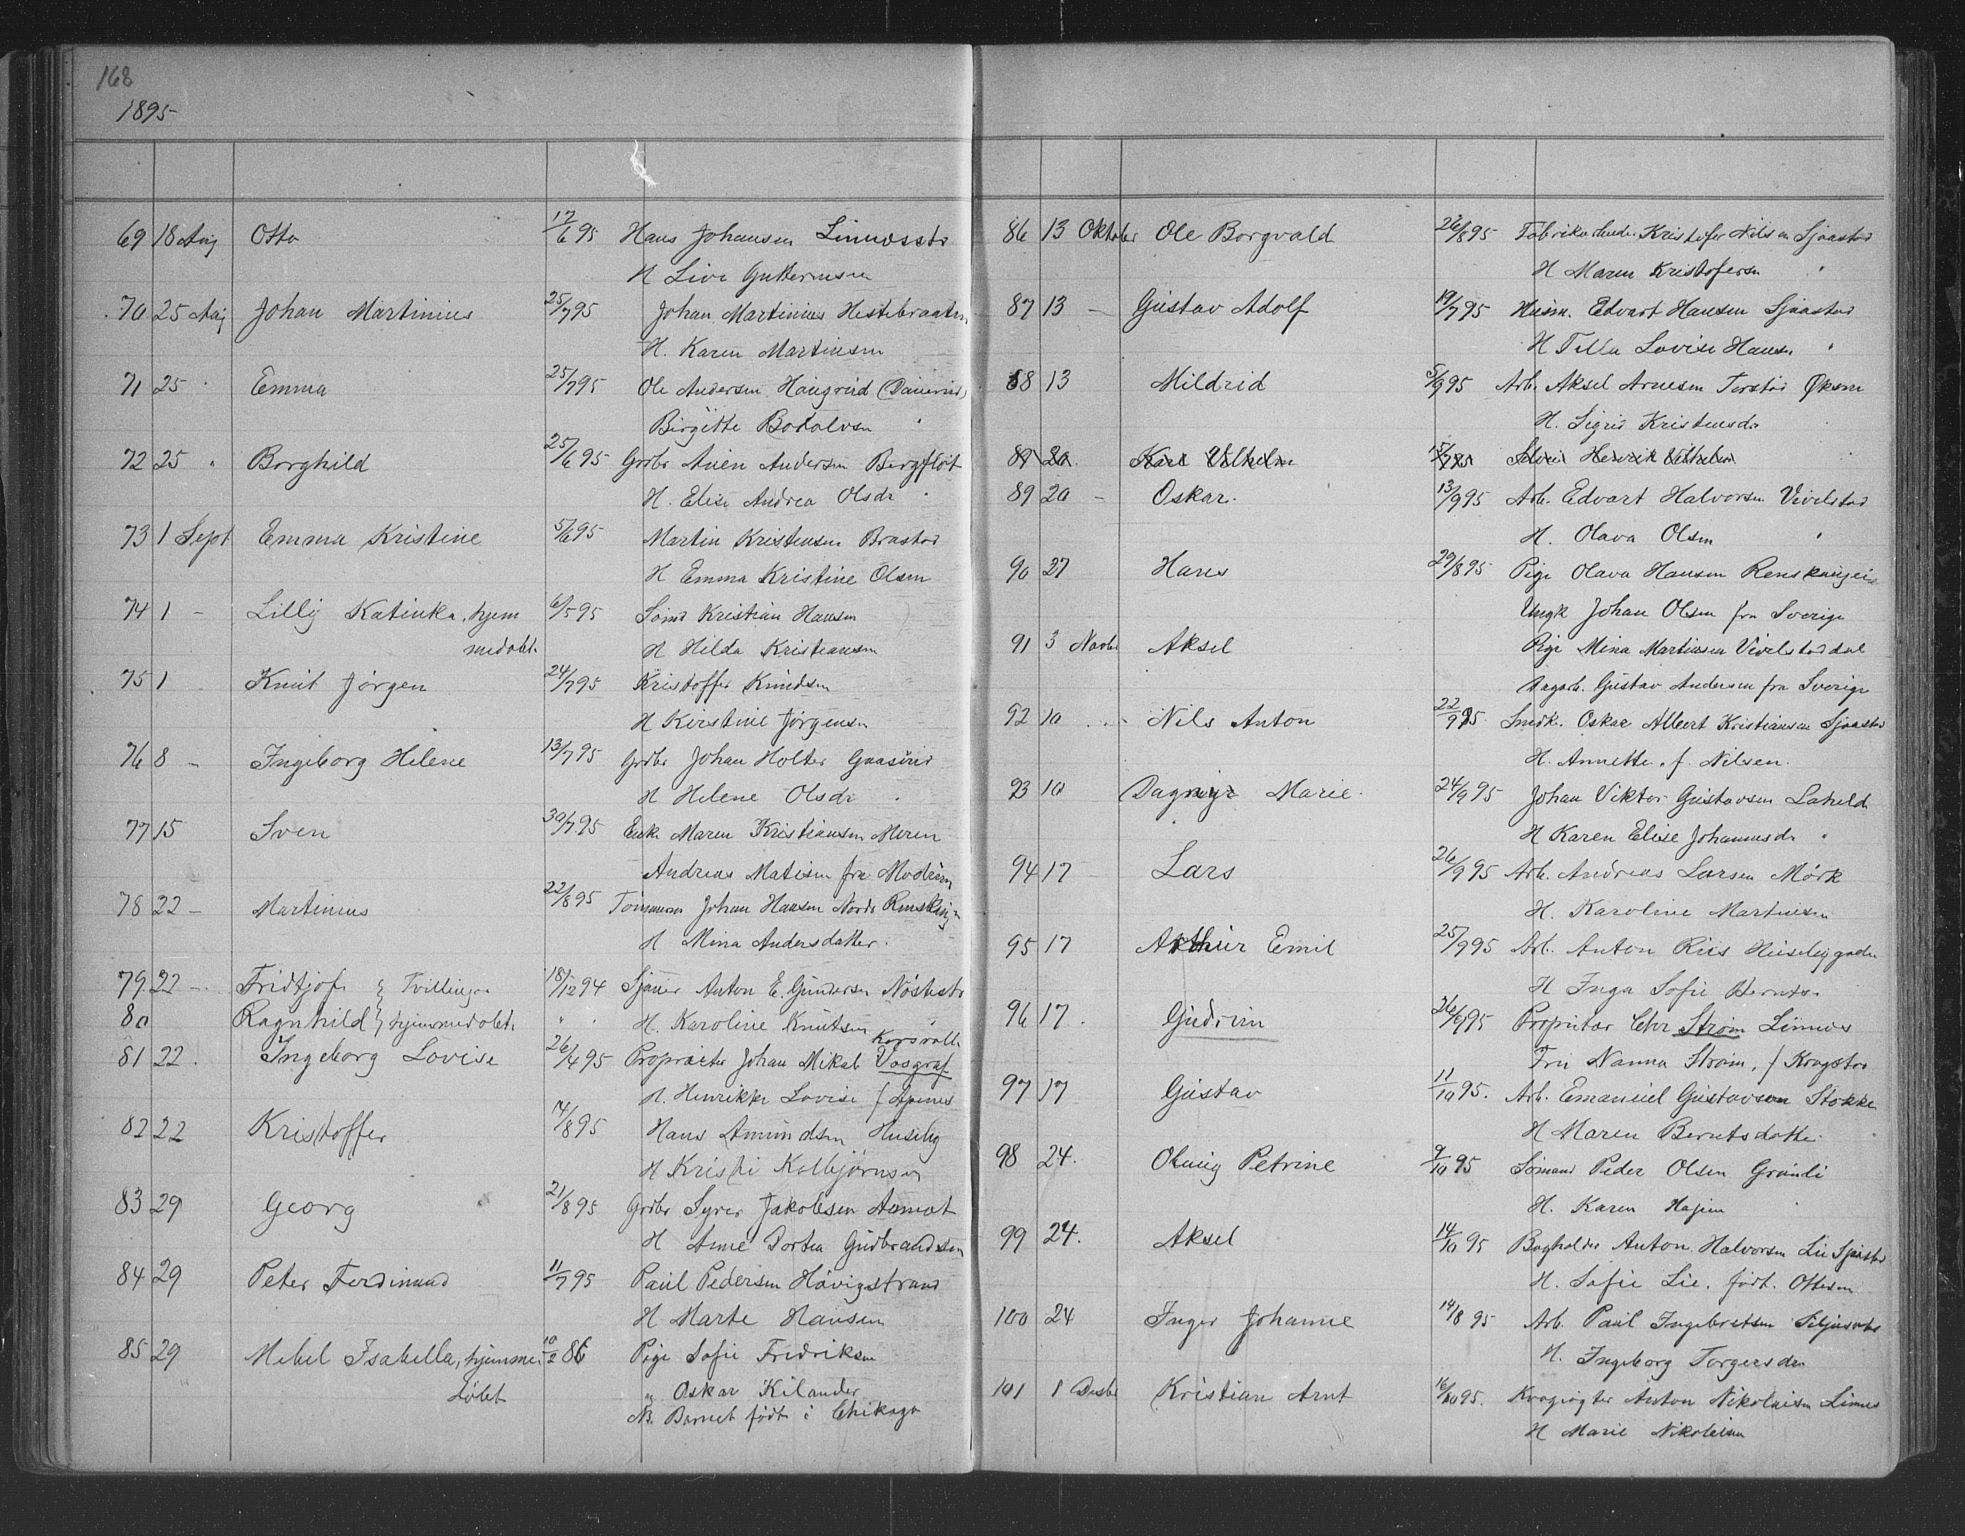 168
1895
69 18 Aug Otto 17/6 95 Hans Johansen
H Live Guttormsen
70 25 Aug Johan Martinius 25/7 95 Johan Martinius Hestebraaten
H. Karen Martinsen
71 25 " Emma 25/7 95 Ole Andersen Haugrud
Birgitte
72 25 " Borghild 25/6 95 Grdbr Andersen Bergfløt
H. Elise Andrea Olsdr "
73 1 Sept Emma Kristine 5/6 95 Martin Kristensen
H Emma Kristine Olsen
74 1 - Lilly Katinka, hjem 6/5 95 Sømd Kristian Hansen
medøbt. H Hilda Kristiansen
75 1 Knut Jørgen 24/7 95 Kristoffer Knudsen
H Kirstine Jørgensen
76 8 - Ingeborg Helene 13/7 95 Grdbr Johan Holter Gaasvid
H Helene Olsdr "
77 15 Sven 30/7 95 Enke Maren Kristiansen Moren
Andreas Matisen fra Modum
78 22 - Martinius 22/8 95 Tømmerm Johan Hansen Nordr
H Mina Andersdatter.
79 22 - Fridtjof } Tvillinger 18/12 94 Anton E. Gundersen
80 Ragnhild } hjemmedøbt. " " H. Karoline Knutsen "
81 22. Ingeborg Lovise 26/4 95 Proprietær Johan Mikal Vosgraf
H. Henrikke Lovise f
82 22 Kristoffer 14/8 95 Hans Amundsen Huseby
H Kristi Kolbjørnsen
83 29 Georg 21/8 95 Grdbr Syver Jakobsen Aamot
H Anne Dortea Gudbrandsen
84 29 Peter Ferdinand 11/7 95 Paul Pedersen Høvigstrand
H Marte Hansen
85 29 Mebel Isabella, hjemme 10/2 86 Pige Sofie Fredriksen
døbt " Oskar Kilander
NB. Barnet født i Chikago
86 13 Oktober Ole Borgvald 26/8 95 Fabrikarbeid. Kristofer Nilsen Sjaastad
H Maren Kristofersen "
87 13 - Gustav Adolf 19/7 95 Husm. Edvart Hansen Sjaastad
H Tilla Lovise Hansen "
88 13 Mildrid 5/9 95 Arb. Aksel Arnesen Øksne
H. Sigrid Kristensdr
89 20. Karl Vilhelm Henrik Vilhelm
89 20 - Oskar. 13/9 95 Arb. Edvart Halvorsen Vivelstad
H. Olava Olsen "
90 27 Hans 29/8 95 Pige Olava Hansen
Ungk Johan Olsen fra Sverige
91 3 Novbr Aksel Pige Mina Martinsen Vivelstaddal
Dagarb. Gustav Andersen fra Sverige
92 10 - Nils Anton 22/9 95. Smedk. Oskar Albert Kristiansen Sjaastad
H. Annette. f. Nilsen.
93 10 Dagny Marie. 24/9 95 Johan Viktor Gustavsen Lahelde
H Karen Elise Johannesdr "
94 17 - Lars 26/9 95 Arb. Andreas Larsen Mørk
H. Karoline Martinsen
95 17 Arthur Emil 25/9 95 Arb. Anton Riis Husebygaden
H Inga Sofie Berntsn
96 17. Gudrun 26/6 95 Proprietær Chr Strøm Linnes
Fru Nanna Strøm, f Kragstad
97 17 Gustav 11/10 95. Arb. Emanuel Gustavson Stokke
H Maren Berntsdatter
98 24. Olaug Petrine 9/10 95 Sømand Peder Olsen
H. Karen Hagen
99 24. Aksel 14/10 95 Bogholder Anton Halvorsen Lie Sjaastad
H. Sofie Lie, født. Ottesen
100 24 Inger Johanne 14/8 95 Arb. Paul Ingebretsen
H. Ingeborg Torgersdr
101 1 Desbr Kristian Arnt 16/10 95. Anton Nikolaisen Linnes
H Marie Nikolaisen